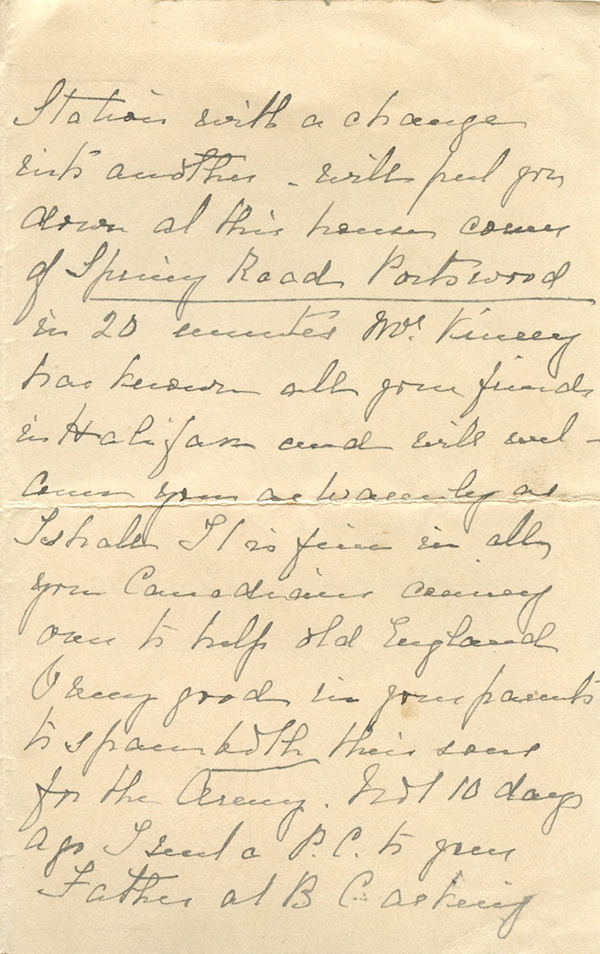 Station with a change
into another - will put you
down at this house corner
of Spring Road Portswood
in 20 minutes Mrs. Kinsey
has known all your friends
in Halifax and will wel-
come you as warmly as
I shall It is fine in all
you Canadians coming
over to help old England
& very good in your parents
to spare both their sons
for the Army. Not 10 days
ago I sent a P.C. to your
Father at B C. asking